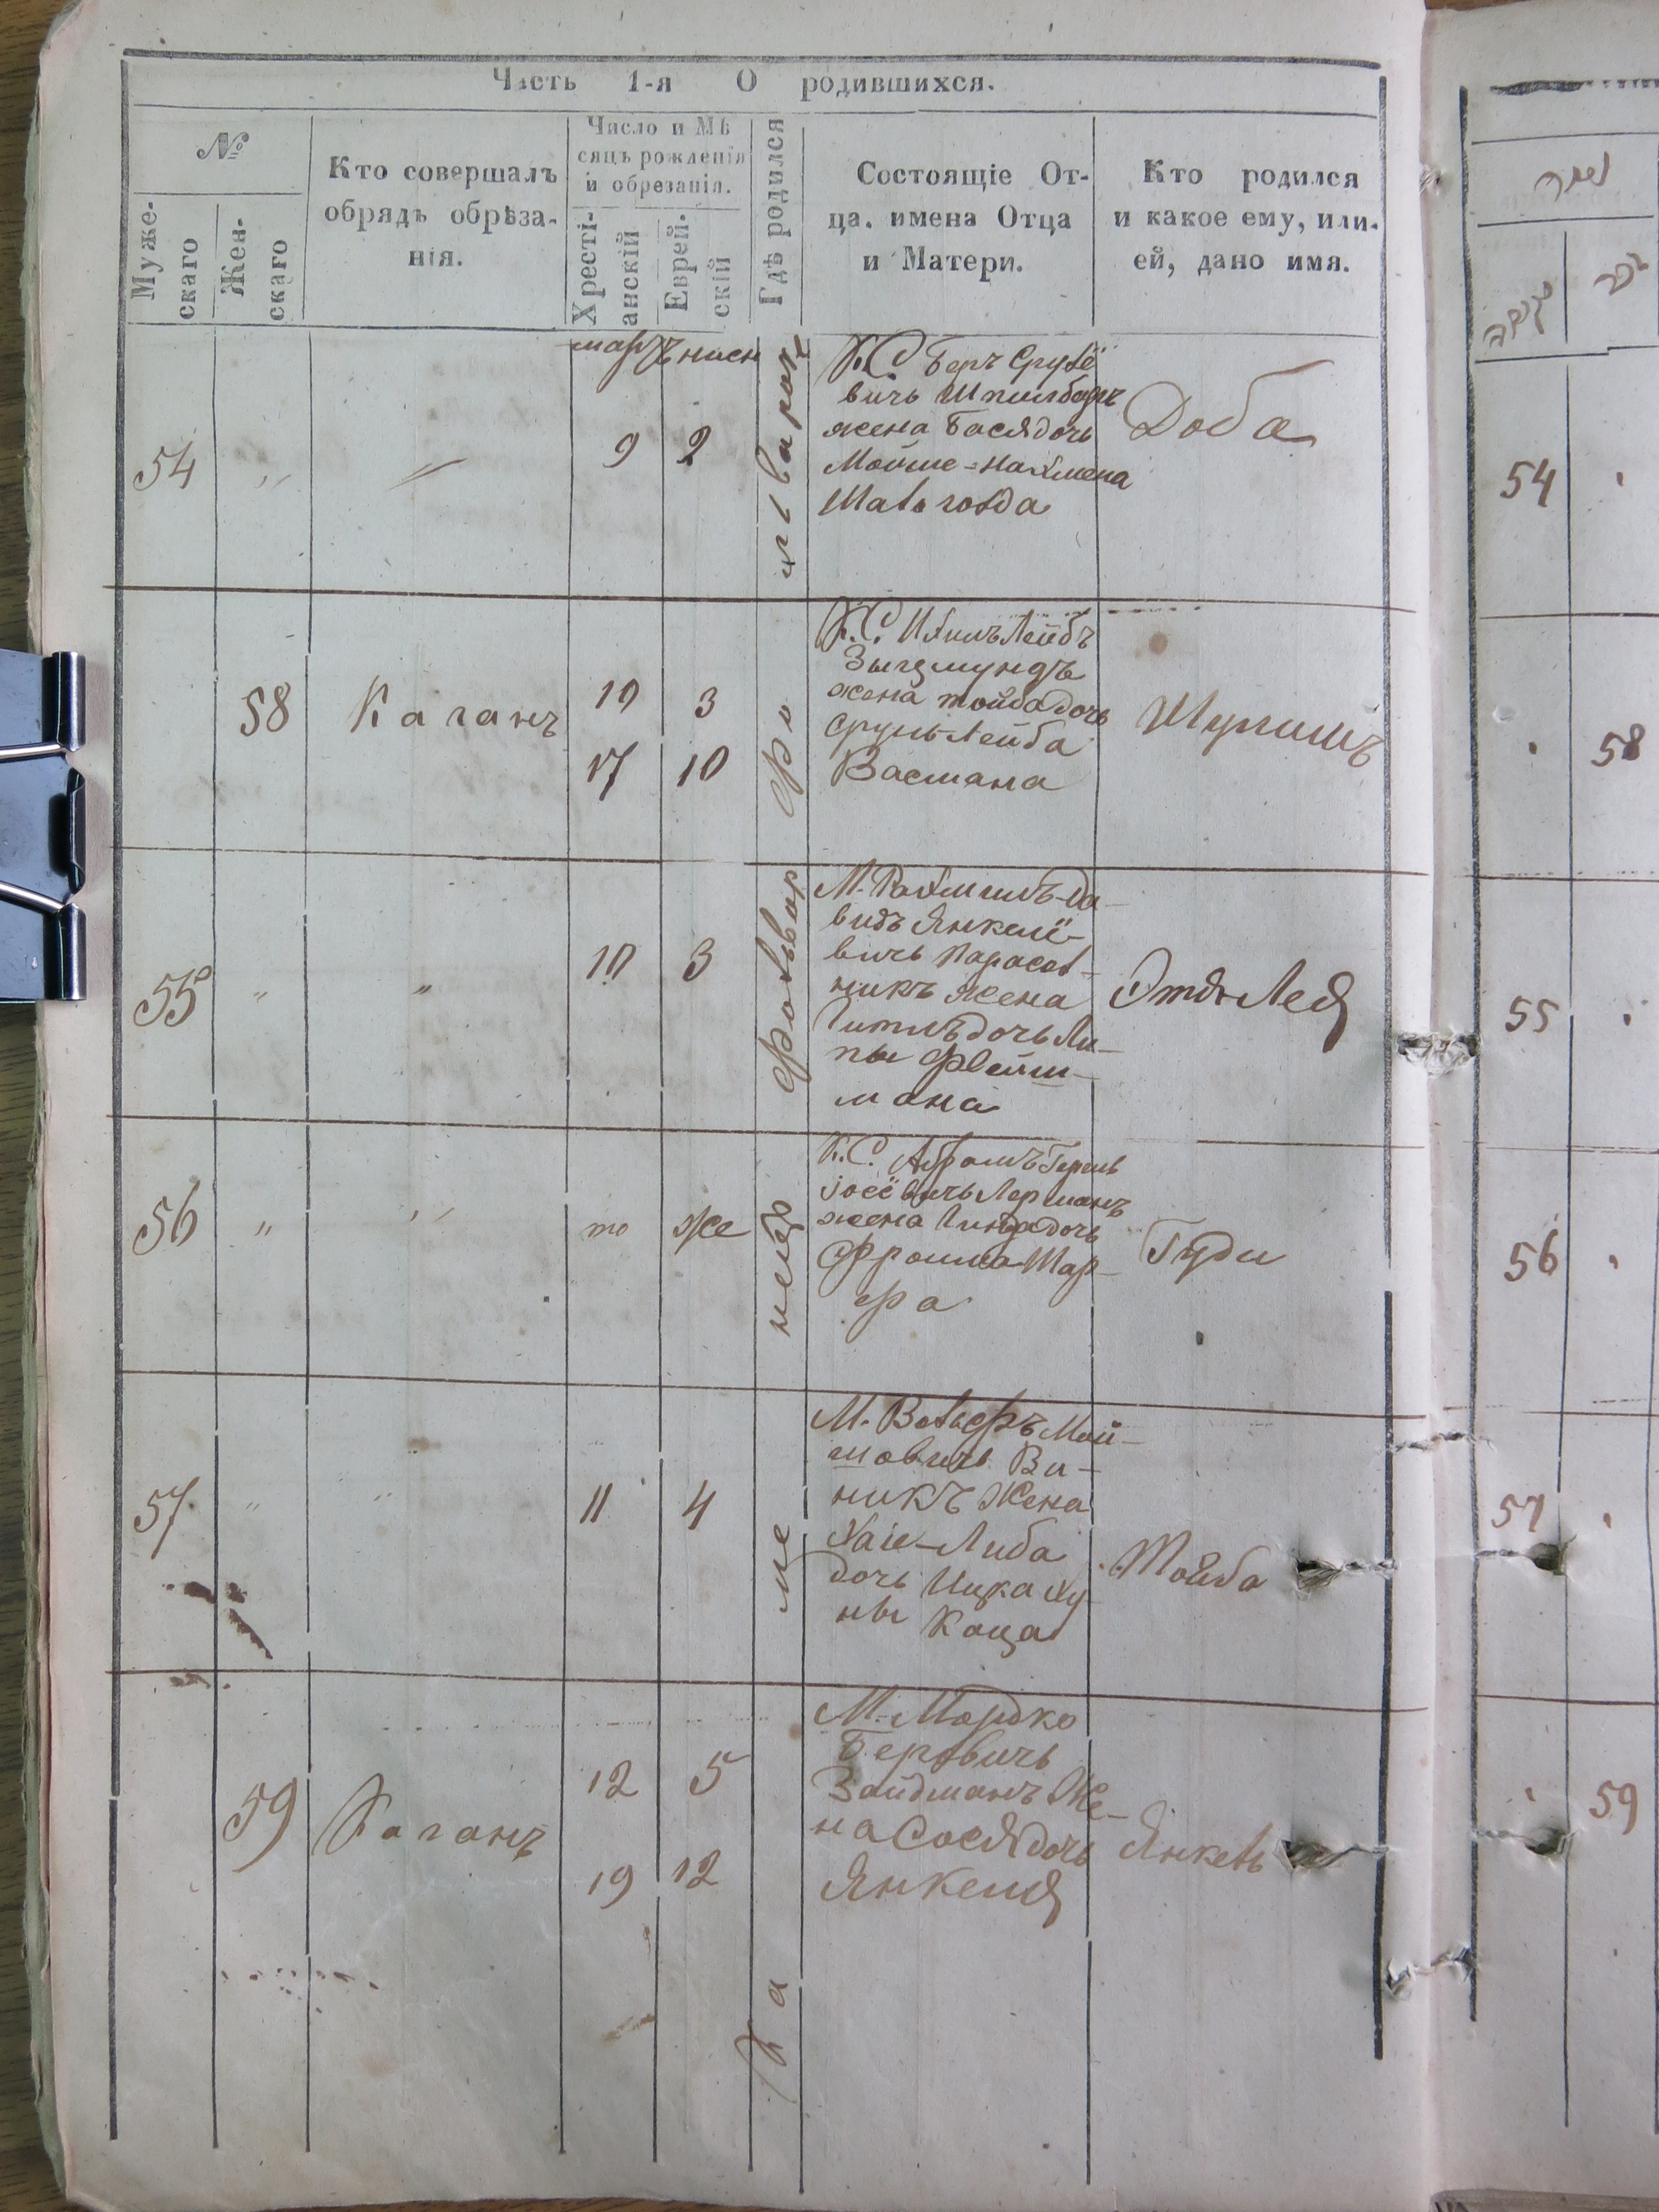 Часть 1-я О родившихся.
№
Муже-
скаго
Жен-
скаго
Кто совершалъ
обрядъ обрѣза-
нія.
Число и Мѣ
сяцъ рожденія
и обрезанія.
Хресті-
анскій
Еврей-
скій
Гдѣ родился
Состоящіе От-
ца, имена Отца
и Матери.
Кто родился
и какое ему, или-
ей, дано имя.
мартъ нисн
54 " " 9 2
К.С. Беръ Срулё
вичь Шпилбергъ
жена Бася дочь
Мойше-Нахмена
Доба
58 Каганъ
10 3
17 10
К.С. Ихилъ Лейбъ
Зыгмундъ
жена тойба дочь
Сруль Лейба
Васмана
55 " " 10 3
М. Рахмилъ-Да-
видъ Янкелё-
вичь Парасол-
никъ жена
Гитлъ дочь Ли-
пы Флейш-
мана
Этя Лея
56 " " то же
К.С. Абрамъ Гершъ
Іосёвичь Лерманъ
жена дочь
Фроима Шар-
фра
57 " " 11 4
М. Вольфъ Мой-
шовичь Ви-
никъ жена
Хаіе-Либа
дочь Ицка Ху-
ны Каца
Тойба
59 Каганъ
12 5
19 12
М. Мордко
Беровичь
Зайдманъ Же-
на Сося дочь
Янкеля
Янкель
54
58
55
56
57
59